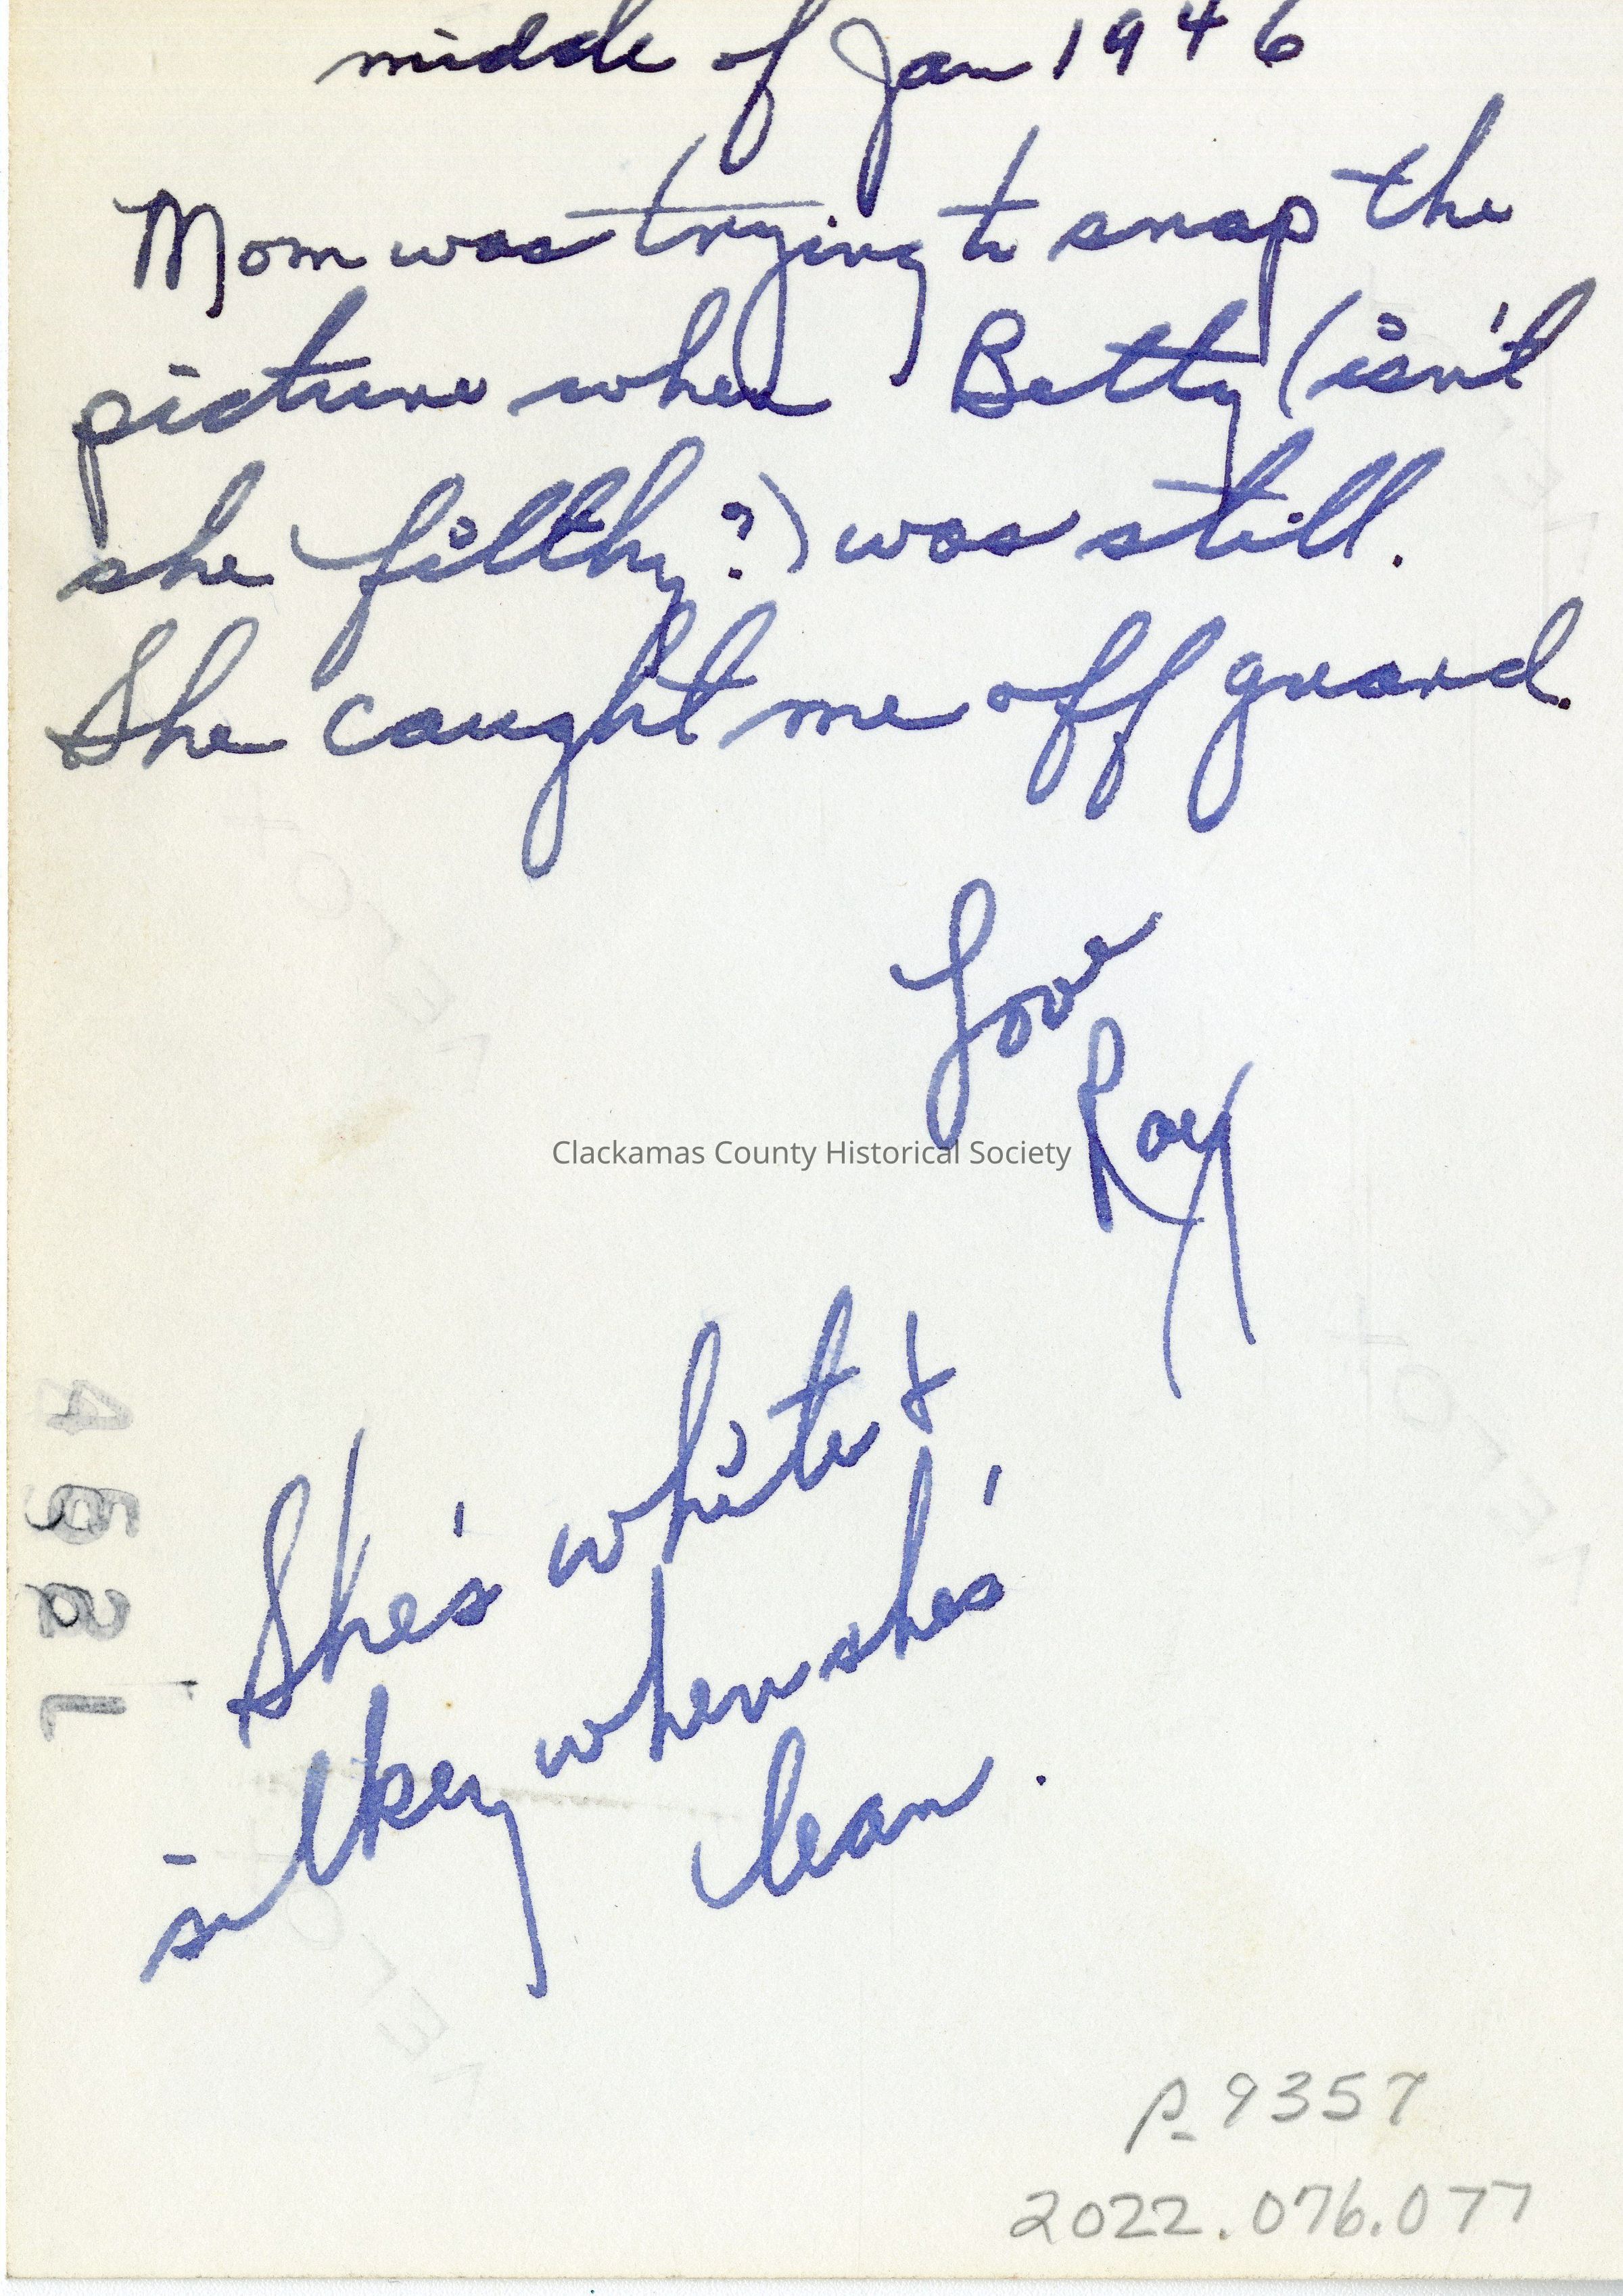 middle of Jan 1946
Mom was trying to snap the
picture when Betty (isn't
she filthy?) was still.
She caught me off guard.
Love
Roy
Clackamas County Historical Society
She's white &
silkey when she's
clean.
P-9357
2022.076.077